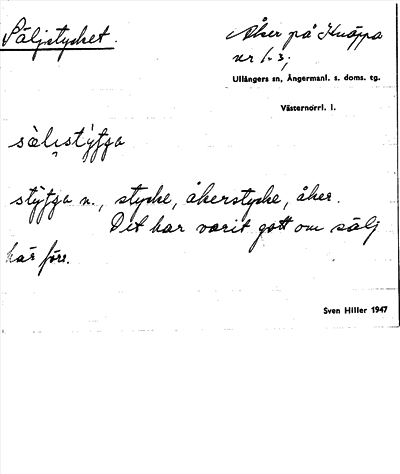 Säljstycket.
Åker på Knäppa
nr 1-3;
Ullångers sn, Ångermanl. s. doms. tg.
Västernorrl. l.
sèlisty̆t̆ga
sty̆t̆ga n., stycke, åkerstycke, åker.
Det har varit gott om sälj
här förr.
Sven Hiller 1947